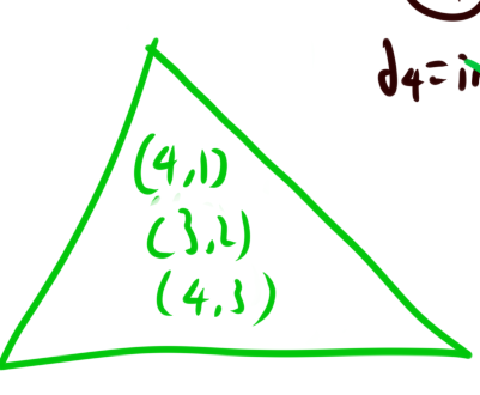 d4=i
(4,1)
(3,2)
(4,3)